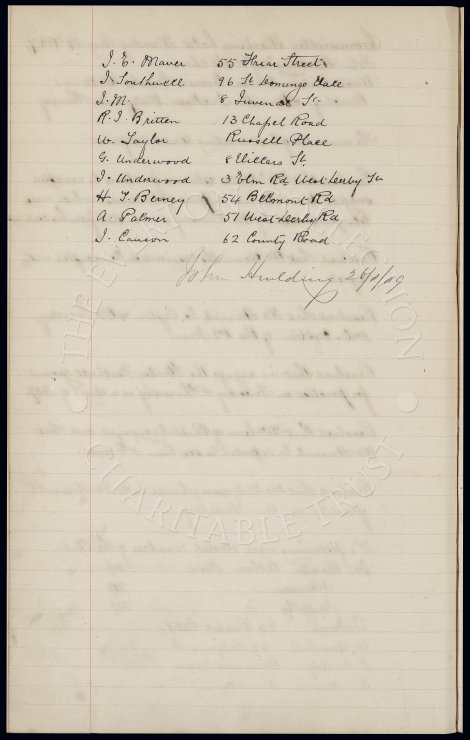 J. E. Maver 55 Friar Street
J. Southwell 96 St Domingo Vale
J. M. 8 Juvenal St
R. J. Britten 13 Chapel Road
W. Taylor Russell Place
G. Underwood 8 Villars St.
J. Underwood 3 Elm Rd West Derby St
H. T. Berney 54 Belmont Rd
A. Palmer 51 West Derby Rd
J. Causon 62 County Road
John Houlding
THE EVERTON COLLECTION
CHARITABLE TRUST